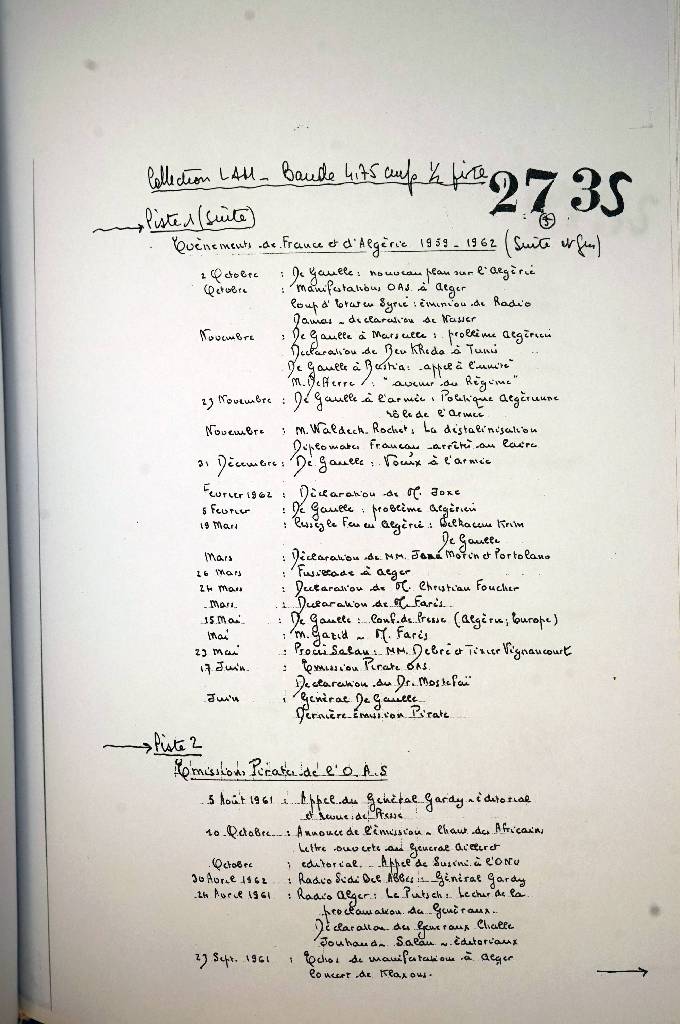 Collection LAM - Bande 4,75 cm/s ½ piste
273S
Piste 1 (Suite)
Evènements de France et d'Algérie 1959 - 1962 (Suite et fin)
2 Octobre : De Gaulle : nouveau plan sur l'Algérie
Octobre : Manifestations OAS à Alger
Coup d'Etat en Syrie : émission de Radio
Damas - declaration de Nasser
Novembre : De Gaulle à Marseille : problème Algérien
Declaration de Ben Kheda à Tunis
De Gaulle à Bastia : appel à l'unité
M. Defferre : "avenir du Régime"
23 Novembre : De Gaulle à l'armée : Politique Algérienne
rôle de l'Armée
Novembre : M. Waldeck-Rochet : La déstalinisation
Diplomates Français arrêtés au Caire
31 Décembre : De Gaulle : Voeux à l'armée
Fevrier 1962 : Déclaration de M. Joxe
5 Fevrier : De Gaulle : problème Algérien
19 Mars : Cessez le Feu en Algérie : Belkacem Krim
De Gaulle
Mars : Déclaration de MM. Morin et Portolano
26 Mars : Fusillade à Alger
24 Mars : Declaration de M. Christian Foucher
Mars : Declaration de M. Farès
15 Mai : De Gaulle : Conf. de Presse (Algérie ; Europe)
Mai : M. Gazid - M. Farès
23 Mai : Procès Salan : MM. Debré et Tixier Vignancourt
17 Juin : Emission Pirate OAS
Declaration du Dr. Mostefaï
Juin : Général De Gaulle
Dernière émission Pirate
Piste 2
Emissions Pirates de l'O.A.S
5 Août 1961 : Appel du Général Gardy - éditorial
et revue de Presse
10 Octobre : Annonce de l'émission - Chant des Africains
Lettre ouverte au General Ailleret
Octobre : editorial - Appel de Susini à l'ONU
30 Avril 1962 : Radio Sidi Bel Abbès : Général Gardy
24 Avril 1961 : Radio Alger : Le Putsch : Lecture de la
proclamation des Generaux
Déclaration des Generaux Challe
Jouhaud - Salan - éditoriaux
23 Sept. 1961 : Echos de manifestation à Alger
Concert de Klaxons.